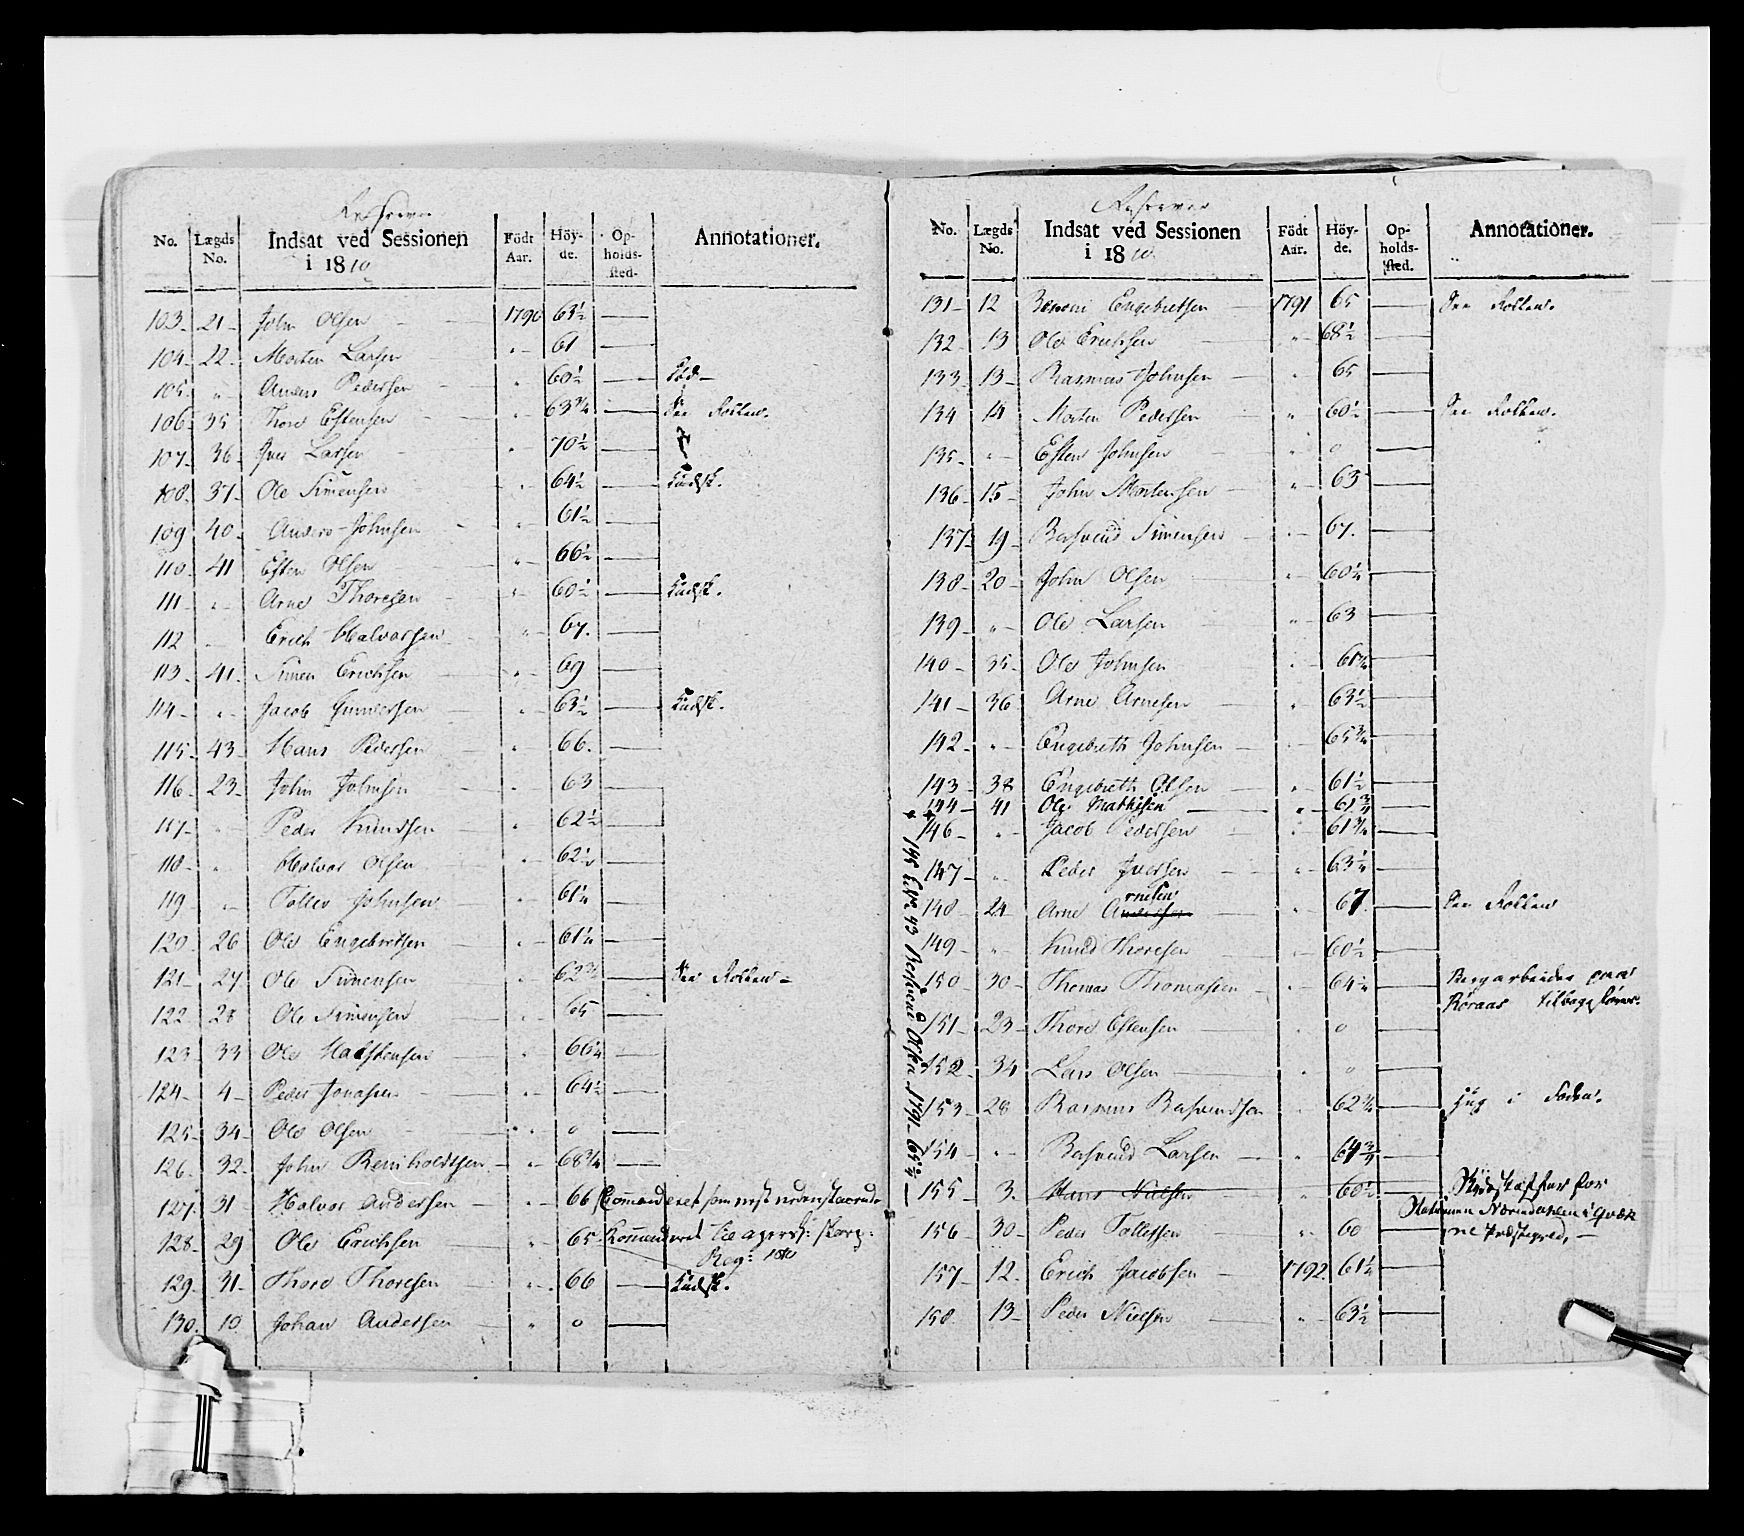 Reserver
No. Lægds No. Indsat ved Sessionen i 1810 Födt Aar. Höyde. Opholdssted. Annotationer.
103 21 John Olsen 1790 63½
104 22 Morten Larsen " 61
105 " Anders Pedersen " 60½ Död
106 35 Thore Estensen " 63¾ See Rollen.
107 36 Iver Larsen " 70½
108 37 Ole Simensen " 64½ Kudsk.
109 40 Anders Johnsen " 61½
110 41 Esten Olsen " 66½
111 " Arne Thoresen " 60½ Kudsk.
112 " Erich Halvorsen " 67.
113 41 Simen Erichsen " 69
114 " Jacob Gunnersen " 63½ Kudsk.
115 43 Hans Pedersen " 66.
116 23 John Johnsen " 63
117 " Peder Knudsen " 62½
118 " Halvor Olsen " 62½
119 " Tollev Johnsen " 61¼
120 26 Ole Engebretsen " 61¼
121 27 Ole Simensen " 62¾ See Rollen
122 28 Ole Simensen " 65
123 33 Ole Halstensen " 66¼
124 4 Peder Jonassen " 64½
125 34 Ole Olsen " 0
126 32 John Reinholdtsen " 68¾
127 31 Halvor Andersen " 66 Commanderet som næst nedenstaaende
128 29 Ole Erichsen " 65 Kommanderet til agersh: skarp:
Reg: 1810
129 31 Thore Thoresen " 66 Kudsk.
130 10 Johan Andersen " 0
Reserver
No. Lægds No. Indsat ved Sessionen i 1810 Födt Aar. Höyde. Opholdssted. Annotationer.
131 12 Benoni Engebretsen 1791 65 See Rollen.
132 13 Ole Erichsen " 68½
133 13 Rasmus Johnsen " 65
134 14 Morten Pedersen " 60½ See Rollen.
135 " Esten Johnsen " 0
136 15 John Mortensen " 63
137 19 Basmund Simensen " 67.
138 20 John Olsen " 60¼
139 " Ole Larsen " 63
140 35 Ole Johnsen " 61¾
141 36 Arne Arnesen " 63½
142 " Engebreth Johnsen " 65¾
143 38 Engebreth Olsen " 61½
144 41 Ole Mathisen " 61¾
146 " Jacob Pedersen " 61¾
147 " Peder Iversen " 63¼
148 24 Arne Andersen rnesen " 67. See Rollen
149 " Knud Thoresen " 60½
150 30 Thomas Thomasen " 64¼ Bergarbeider paa
Röraas tilbageföres.
151 23 Thore Estensen " 0
152 34 Lars Olsen " 0
153 28 Rasmus Basmundsen " 62¾ syg i Foden.
154 " Basmund Larsen " 64¾
155 3. Hans Nielsen 60½ Skydskaffer for
Stationen Næverdahlen i Qvæk
156 30 Peder Tollefsen " 60 ne Præstegield,
157 12. Erich Jacobsen 1792. 61¼
158 13 Peder Nielsen " 63½